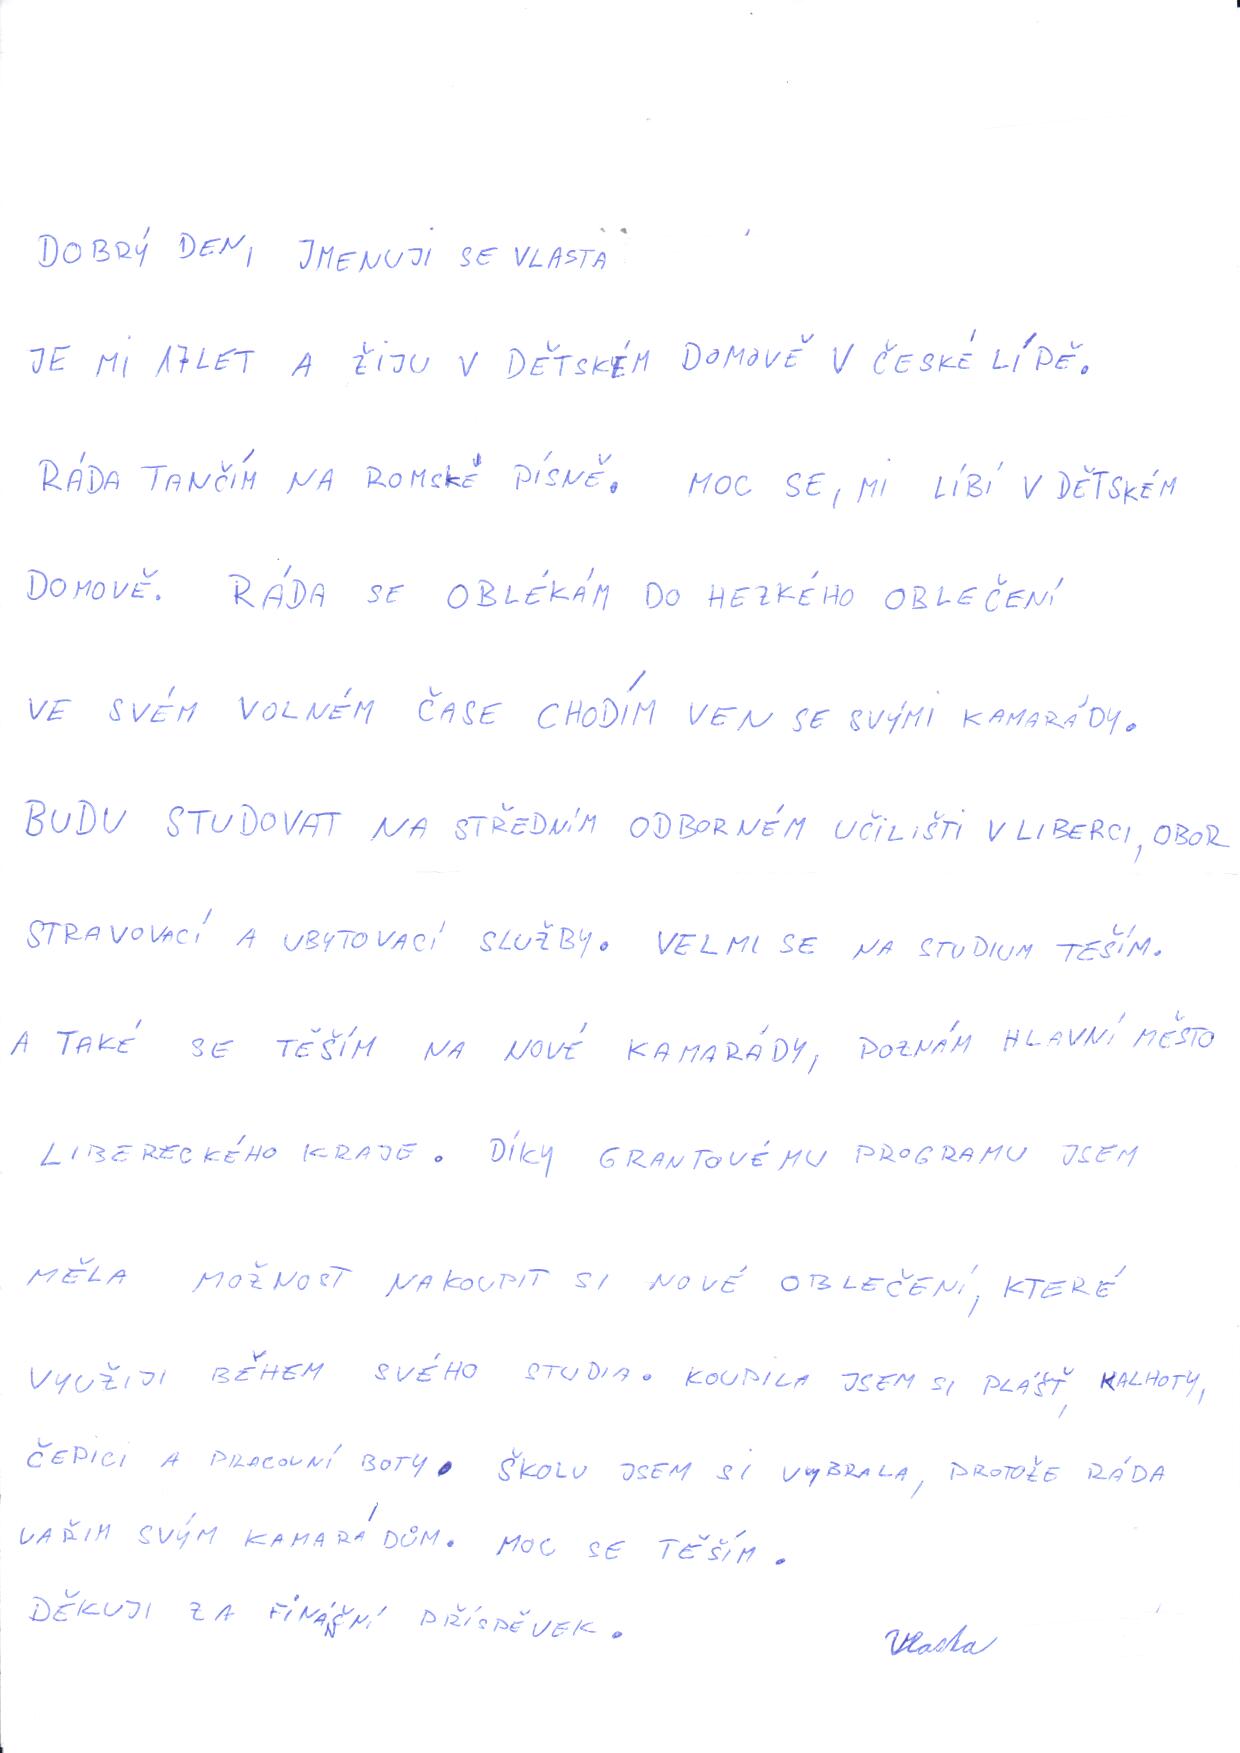 DOBRÝ DEN, JMENUJI SE VLASTA
JE MI 17LET A ŽIJU V DĚTSKÉM DOMOVĚ V ČESKÉ LÍPĚ.
RÁDA TANČÍM NA ROMSKÉ PÍSNĚ. MOC SE, MI LÍBÍ V DĚTSKÉM
DOMOVĚ. RÁDA SE OBLÉKÁM DO HEZKÉHO OBLEČENÍ
VE SVÉM VOLNÉM ČASE CHODÍM VEN SE SVÝMI KAMARÁDY.
BUDU STUDOVAT NA STŘEDNÍM ODBORNÉM UČILIŠTI V LIBERCI, OBOR
STRAVOVACÍ A UBYTOVACÍ SLUŽBY. VELMI SE NA STUDIUM TEŠÍM.
A TAKÉ SE TĚŠÍM NA NOVÉ KAMARÁDY, POZNÁM HLAVNÍ MĚSTO
LIBERECKÉHO KRAJE. DÍKY GRANTOVÉMU PROGRAMU JSEM
MĚLA MOŽNOST NAKOUPIT SI NOVÉ OBLEČENÍ, KTERÉ
VYUŽIJI BĚHEM SVÉHO STUDIA. KOUPILA JSEM SI PLÁŠŤ, KALHOTY,
ČEPICI A PRACOVNÍ BOTY. ŠKOLU JSEM SI VYBRALA, PROTOŽE RÁDA
VAŘIM SVÝM KAMARÁDŮM. MOC SE TĚŠÍM.
DĚKUJI ZA PŘÍSPĚVEK.
Vlasta